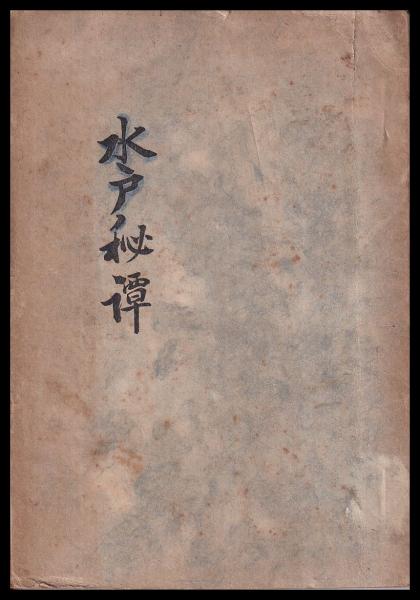 水戸秘譚